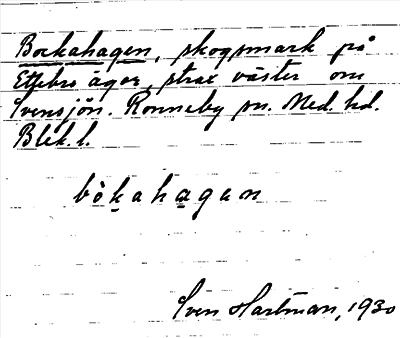 Bockahagen, skogsmark på
Ettebro ägor, strax väster om
Svensjön. Ronneby sn. Med. hd.
Blek. l.
bòkahagen
Sven Hartman, 1930